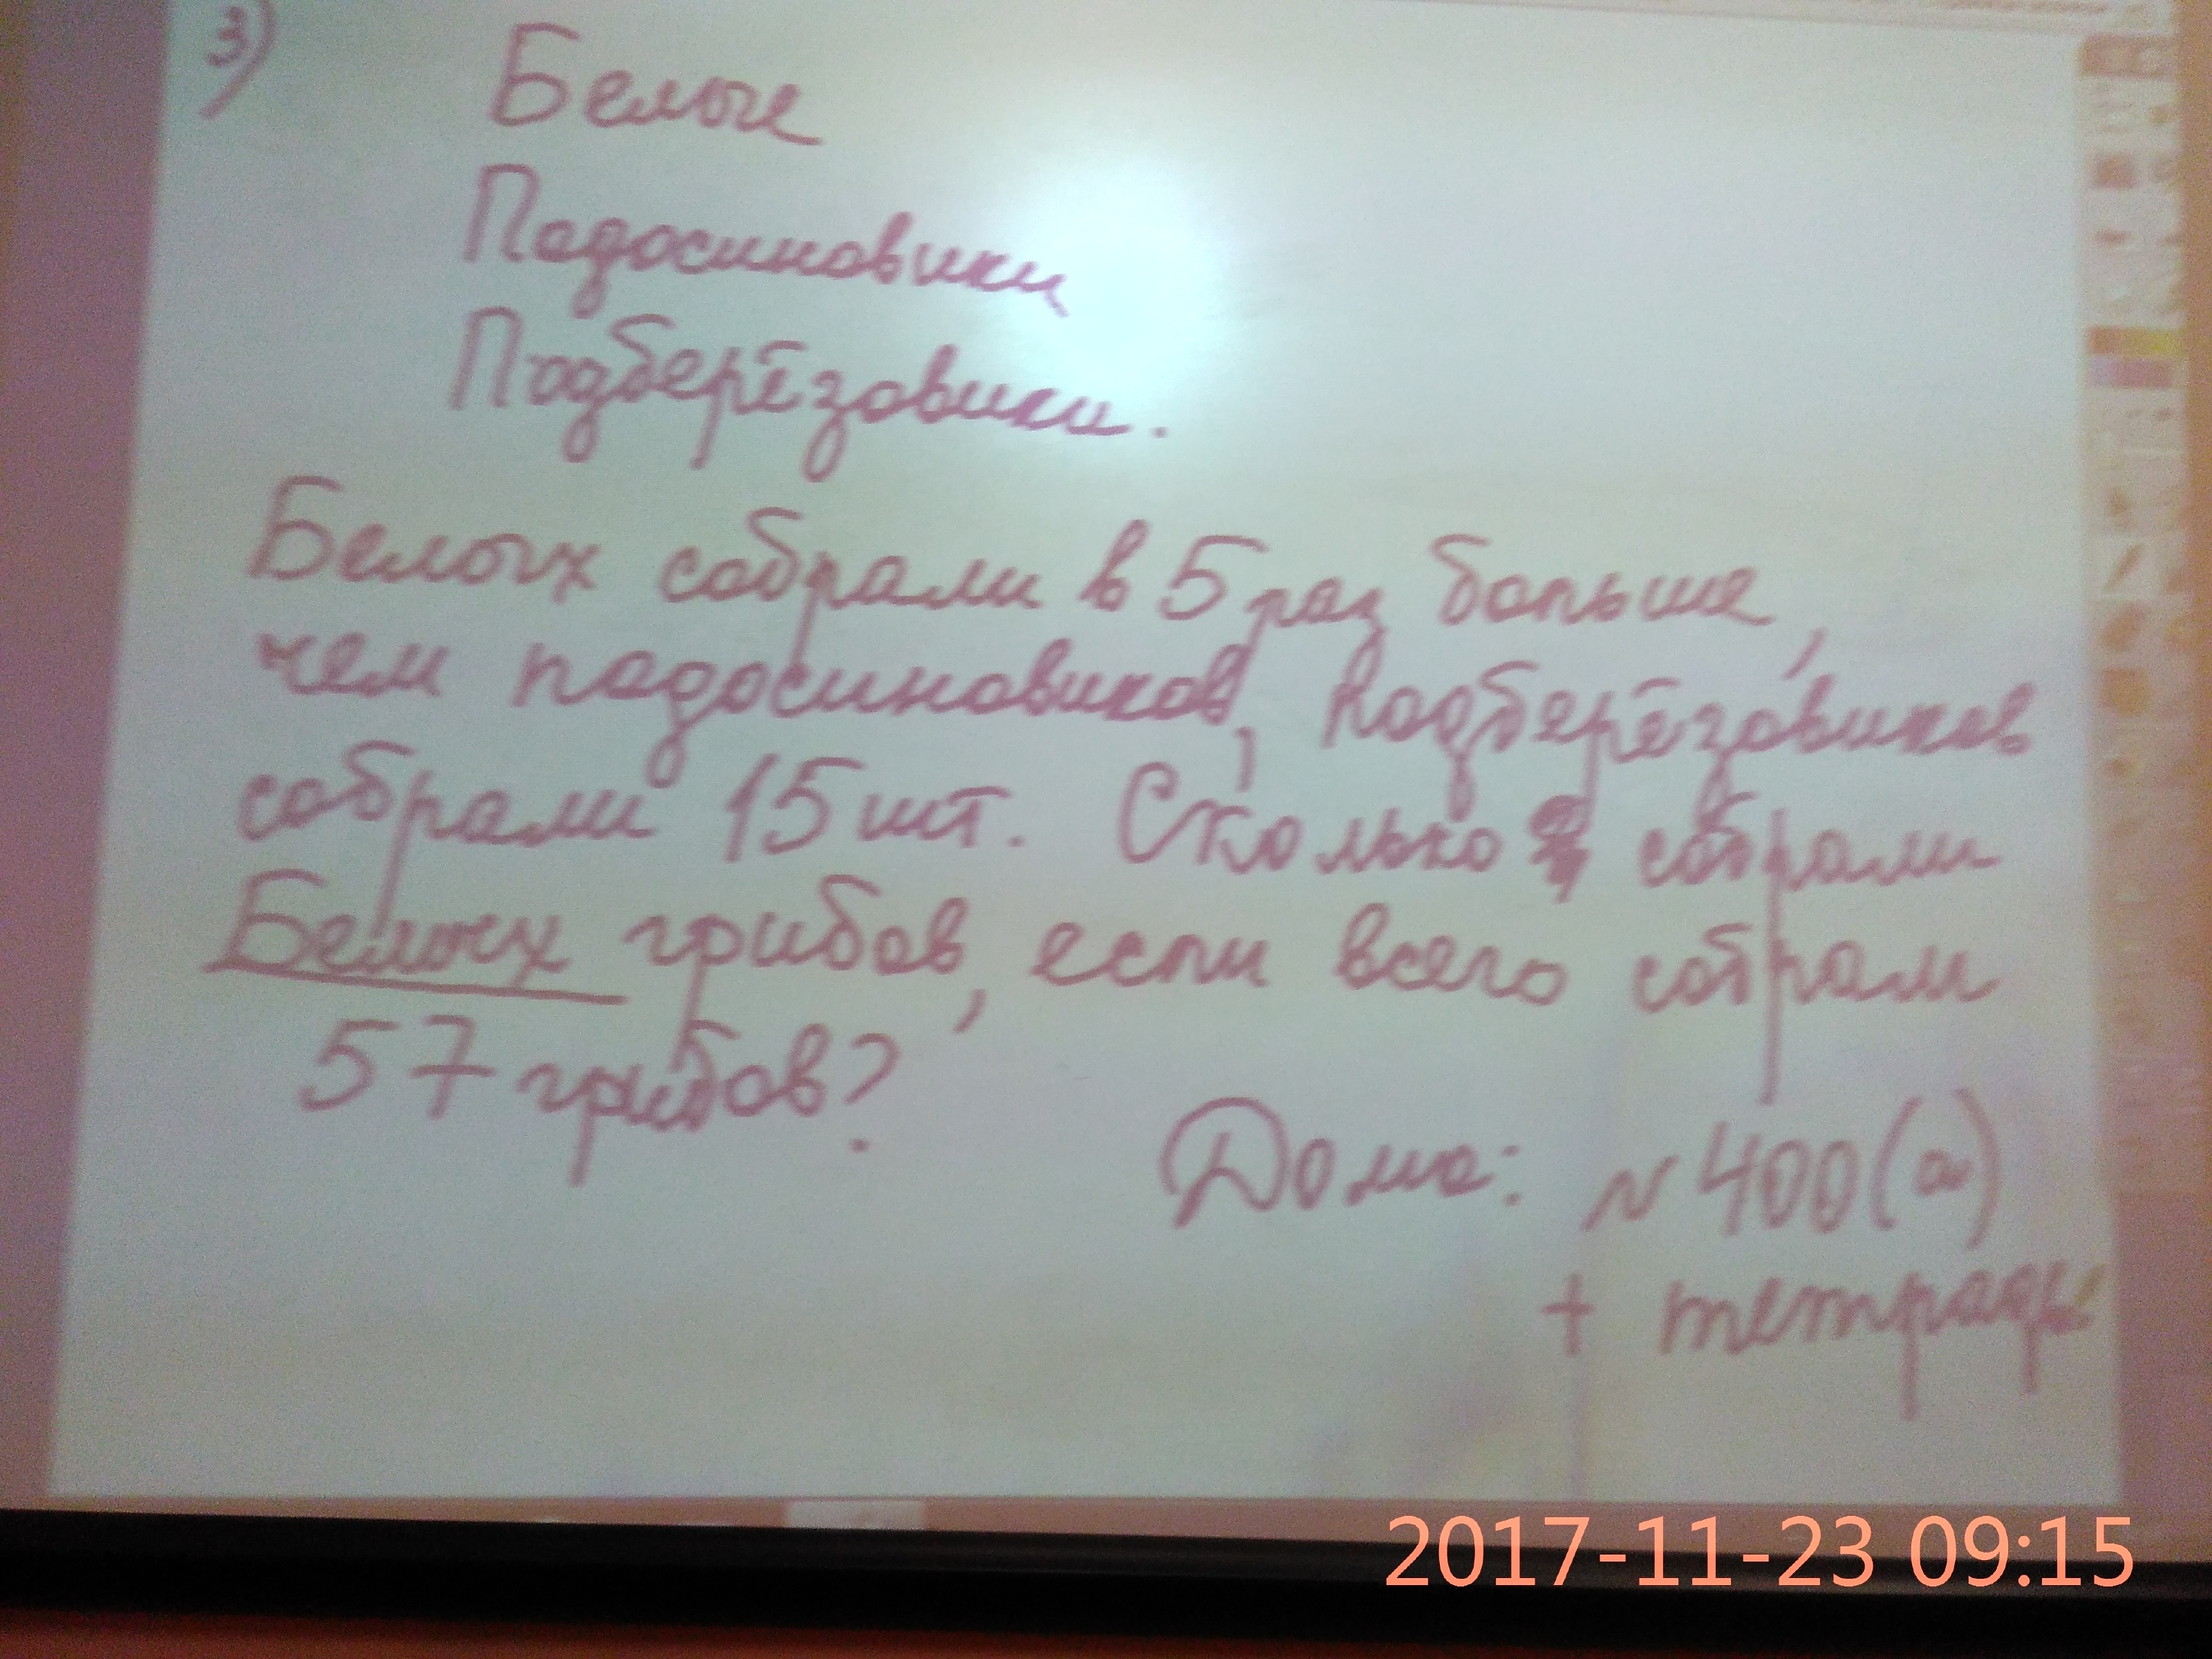 3)
Белые
Падосиновики
Подберёзовики.
Белых собрали в 5 раз больше,
чем падосиновиков, подберёзовиков
собрали 15 шт. Сколько собрали
Белых грибов, если всего собрали
57 грибов?
Дома: N 400(а)
+ тетрадь
2017-11-23 09:15